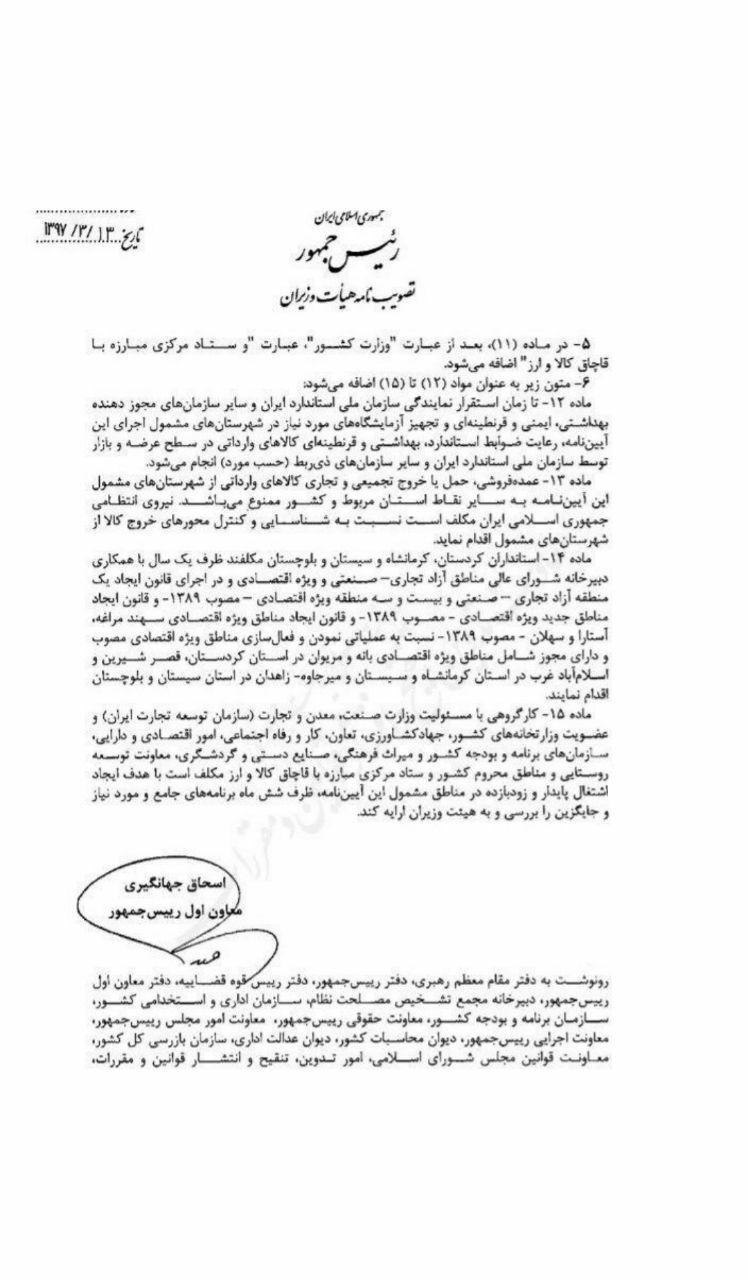 جمهوری اسلامی ایران
رئیس جمهور
تصویب نامه هیأت وزیران
تاریخ ۱۳۹۷/۳/۱۳
۵- در ماده (۱۱)، بعد از عبارت "وزارت کشور"، عبارت "و ستاد مرکزی مبارزه با
قاچاق کالا و ارز" اضافه می‌شود.
۶- متون زیر به عنوان مواد (۱۲) تا (۱۵) اضافه می‌شود:
ماده ۱۲- تا زمان استقرار نمایندگی سازمان ملی استاندارد ایران و سایر سازمان‌های مجوز دهنده
بهداشتی، ایمنی و قرنطینه‌ای و تجهیز آزمایشگاه‌های مورد نیاز در شهرستان‌های مشمول اجرای این
آیین‌نامه، رعایت ضوابط استاندارد، بهداشتی و قرنطینه‌ای کالاهای وارداتی در سطح عرضه و بازار
توسط سازمان ملی استاندارد ایران و سایر سازمان‌های ذی‌ربط (حسب مورد) انجام می‌شود.
ماده ۱۳- عمده‌فروشی، حمل یا خروج تجمیعی و تجاری کالاهای وارداتی از شهرستان‌های مشمول
این آیین‌نامه به سایر نقاط استان مربوط و کشور ممنوع می‌باشد. نیروی انتظامی
جمهوری اسلامی ایران مکلف است نسبت به شناسایی و کنترل محورهای خروج کالا از
شهرستان‌های مشمول اقدام نماید.
ماده ۱۴- استانداران کردستان، کرمانشاه و سیستان و بلوچستان مکلفند ظرف یک سال با همکاری
دبیرخانه شورای عالی مناطق آزاد تجاری– صنعتی و ویژه اقتصادی و در اجرای قانون ایجاد یک
منطقه آزاد تجاری – صنعتی و بیست و سه منطقه ویژه اقتصادی – مصوب ۱۳۸۹- و قانون ایجاد
مناطق جدید ویژه اقتصادی - مصوب ۱۳۸۹- و قانون ایجاد مناطق ویژه اقتصادی سهند مراغه،
آستارا و سهلان - مصوب ۱۳۸۹- نسبت به عملیاتی نمودن و فعال‌سازی مناطق ویژه اقتصادی مصوب
و دارای مجوز شامل مناطق ویژه اقتصادی بانه و مریوان در استان کردستان، قصر شیرین و
اسلام‌آباد غرب در استان کرمانشاه و سیستان و میرجاوه- زاهدان در استان سیستان و بلوچستان
اقدام نمایند.
ماده ۱۵- کارگروهی با مسئولیت وزارت صنعت، معدن و تجارت (سازمان توسعه تجارت ایران) و
عضویت وزارتخانه‌های کشور، جهادکشاورزی، تعاون، کار و رفاه اجتماعی، امور اقتصادی و دارایی،
سازمان‌های برنامه و بودجه کشور و میراث فرهنگی، صنایع دستی و گردشگری، معاونت توسعه
روستایی و مناطق محروم کشور و ستاد مرکزی مبارزه با قاچاق کالا و ارز مکلف است با هدف ایجاد
اشتغال پایدار و زودبازده در مناطق مشمول این آیین‌نامه، ظرف شش ماه برنامه‌های جامع و مورد نیاز
و جایگزین را بررسی و به هیئت وزیران ارایه کند.
اسحاق جهانگیری
معاون اول رییس‌جمهور
رونوشت به دفتر مقام معظم رهبری، دفتر رییس‌جمهور، دفتر رییس قوه قضاییه، دفتر معاون اول
رییس‌جمهور، دبیرخانه مجمع تشخیص مصلحت نظام، سازمان اداری و استخدامی کشور،
سازمان برنامه و بودجه کشور، معاونت حقوقی رییس‌جمهور، معاونت امور مجلس رییس‌جمهور،
معاونت اجرایی رییس‌جمهور، دیوان محاسبات کشور، دیوان عدالت اداری، سازمان بازرسی کل کشور،
معاونت قوانین مجلس شورای اسلامی، امور تدوین، تنقیح و انتشار قوانین و مقررات،